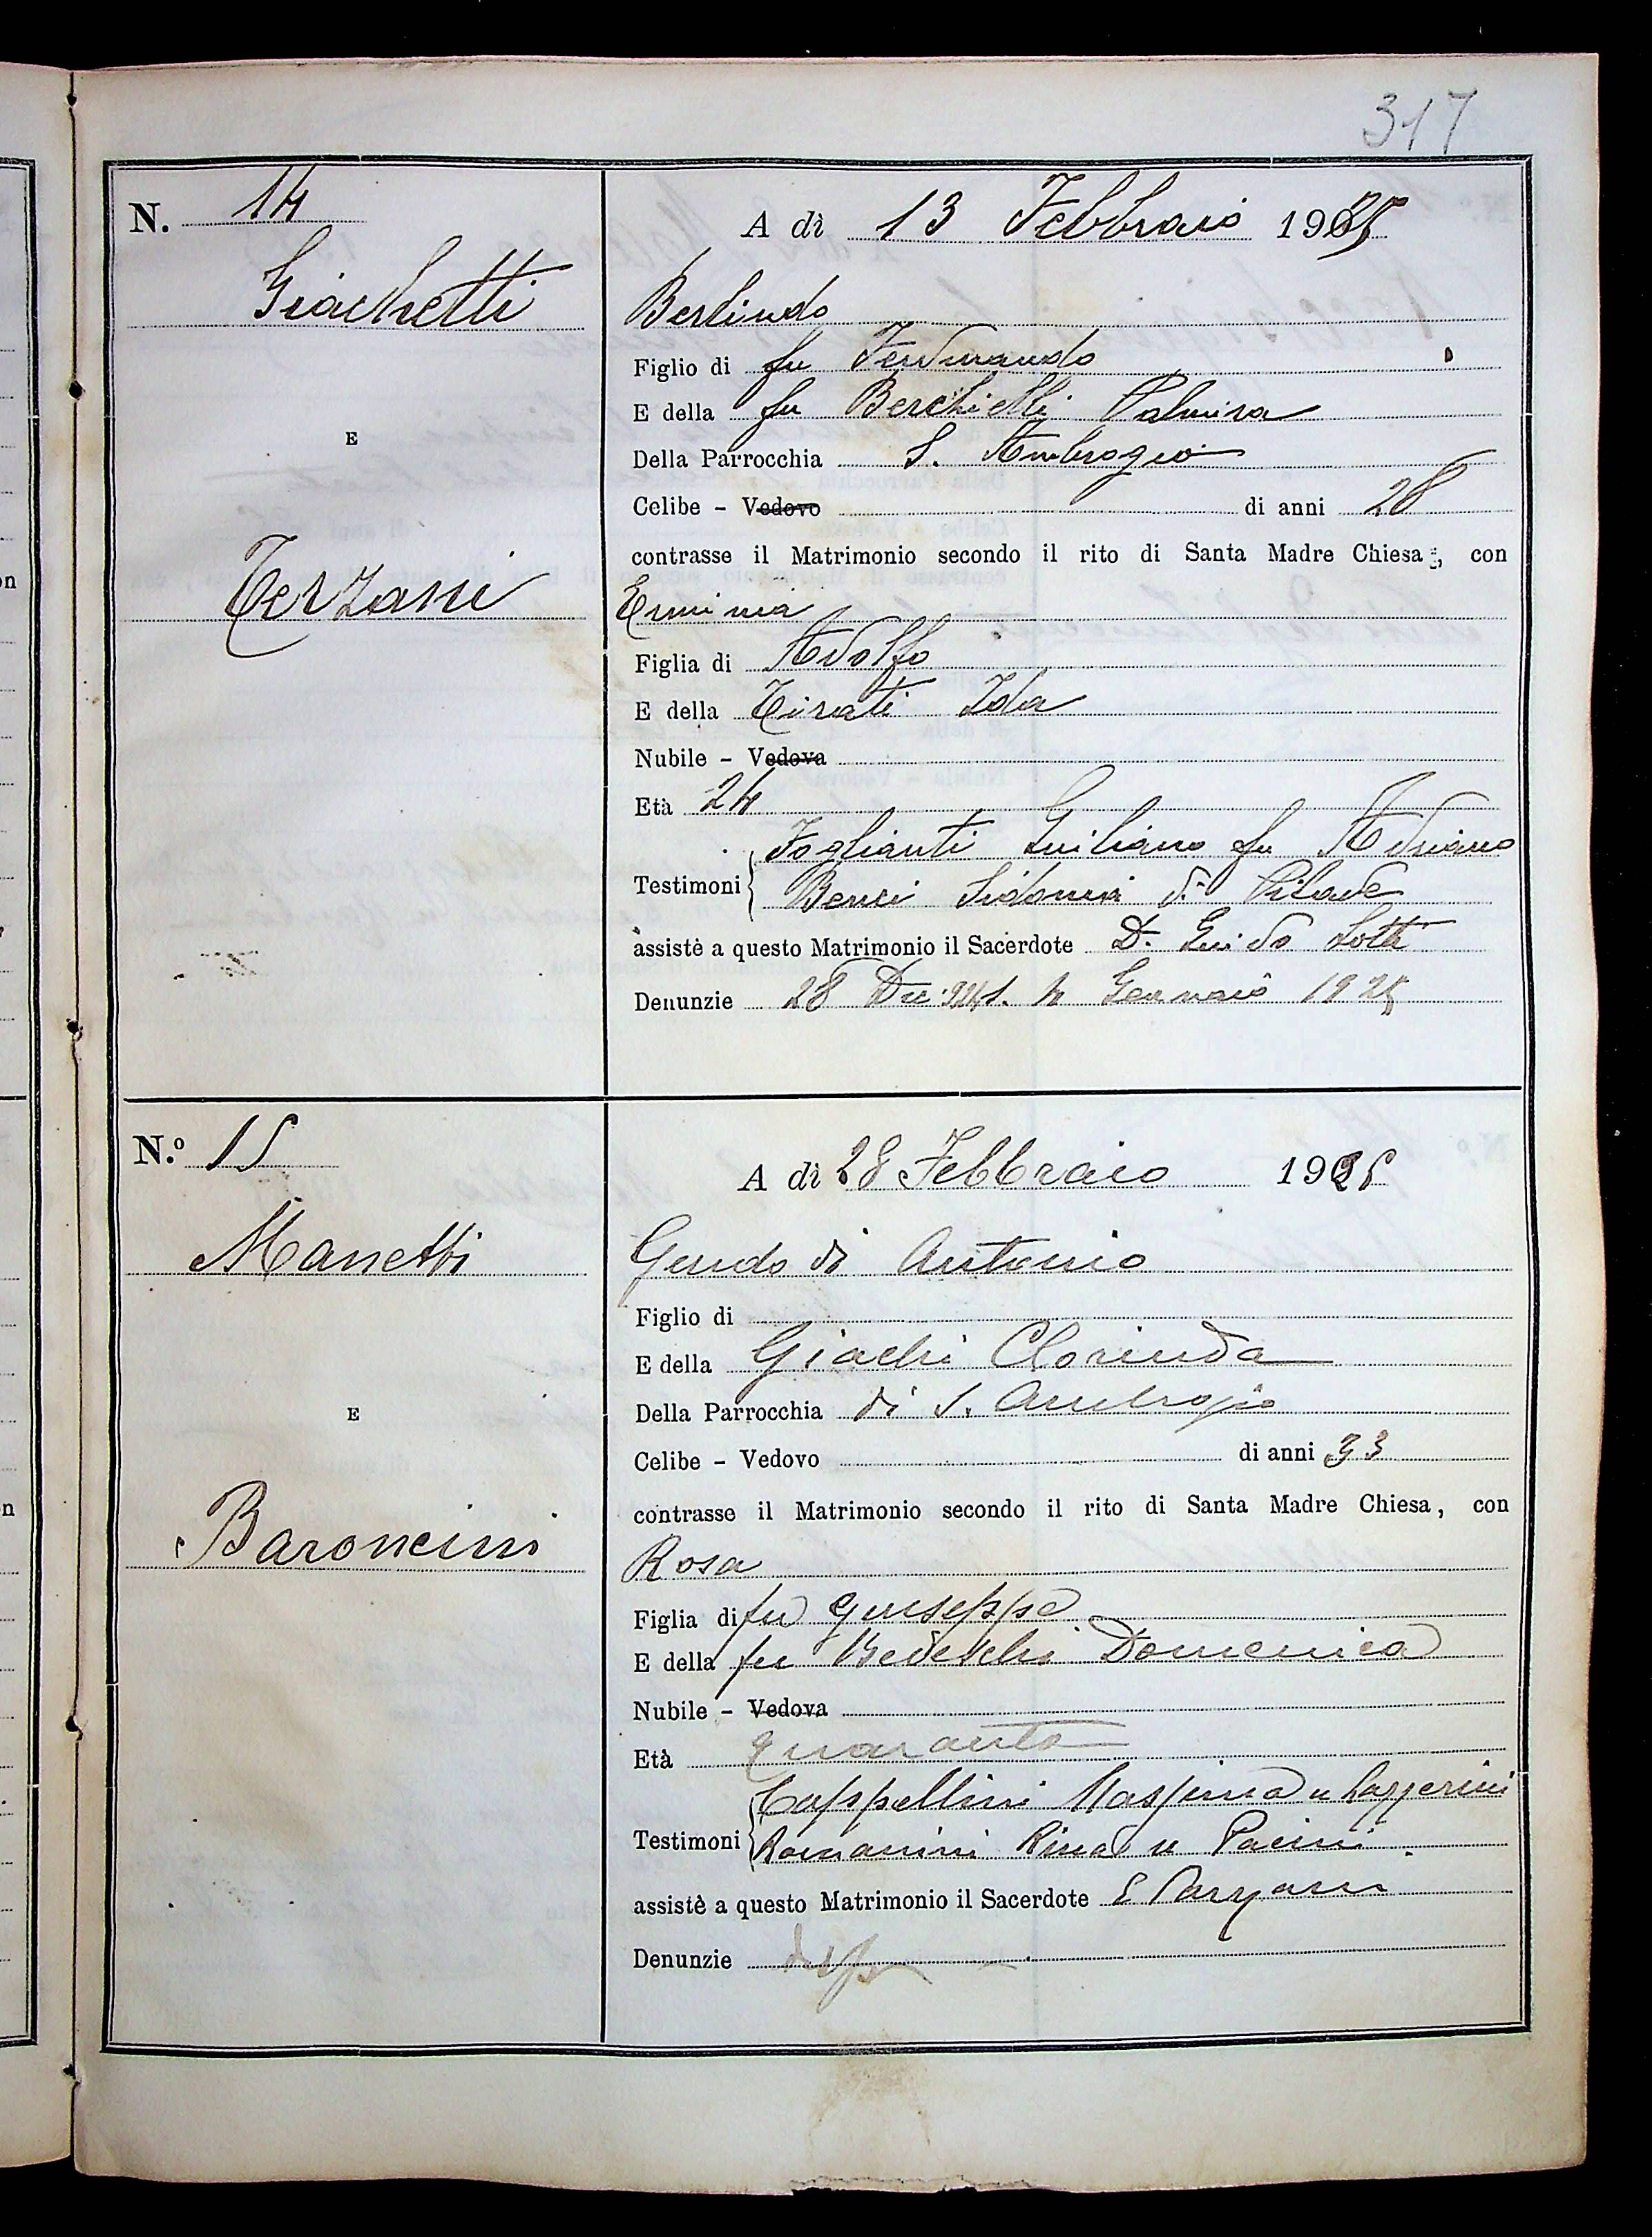 317
N. 14
A dì 13 Febbraio 1925
Giachetti
Berlindo
Figlio di fu Ferdinando
E della fu Berchielli Palmira
E
Della Parrocchia S. Ambrogio
Celibe - Vedovo di anni 28
contrasse il Matrimonio secondo il rito di Santa Madre Chiesa, con
Terzani
Erminia
Figlia di Adolfo
E della Tirati Ida
Nubile - Vedova
Età 24
Foglianti Giuliano fu Adriano
Testimoni
Benci Sidonia di Pilade
assistè a questo Matrimonio il Sacerdote D. Guido Lotti
Denunzie 28 Dic. 924 1. 4 Gennaio 1925
N.º 15
A dì 28 Febbraio 1925
Manetti
Guido di Antonio
Figlio di
E della Giachi Clorinda
Della Parrocchia di S. Ambrogio
E
Celibe - Vedovo di anni 33
contrasse il Matrimonio secondo il rito di Santa Madre Chiesa, con
Baroncini
Rosa
Figlia di fu Giuseppe
E della fu Domenica
Nubile - Vedova
Età quaranta
Cappellini n Lazzerini
Testimoni
Romanini Rina n Pacini
assistè a questo Matrimonio il Sacerdote E
Denunzie disp